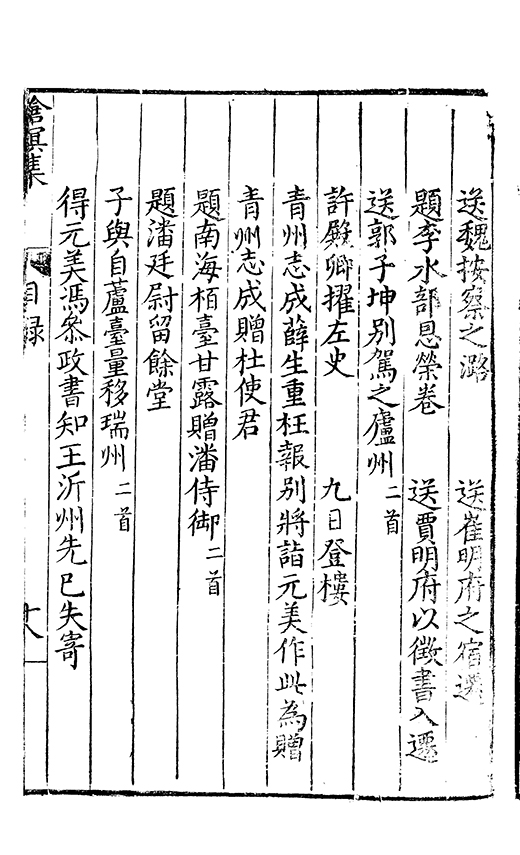 送魏按察之潞　送崔明府之宿遷
題李水部恩榮卷　送賈明府以徵書入遷
送郭子坤別駕之廬州二首
許殿卿擢左史　九日登樓
青州志成薛生重枉報別將詣元美作此為贈
青州志成贈杜使君
題南海栢臺甘露贈潘侍御二首
題潘廷尉留餘堂
子與自蘆臺量移瑞州二首
得元美馮叅政書知王沂州先已失寄
滄溟集
目録
十八